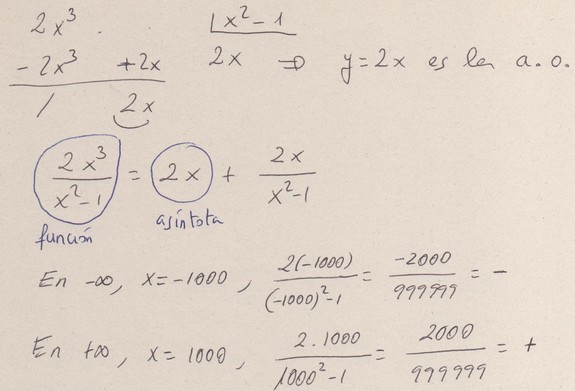 2x³ | x² - 1
- 2x³ + 2x 2x ⇒ y = 2x es la a.o.
/ 2x
2x³/(x² - 1) = 2x + 2x/(x² - 1)
función asíntota
En -∞, x = -1000, 2(-1000)/((-1000)² - 1) = -2000/999999 = -
En +∞, x = 1000, 2 · 1000/(1000² - 1) = 2000/999999 = +